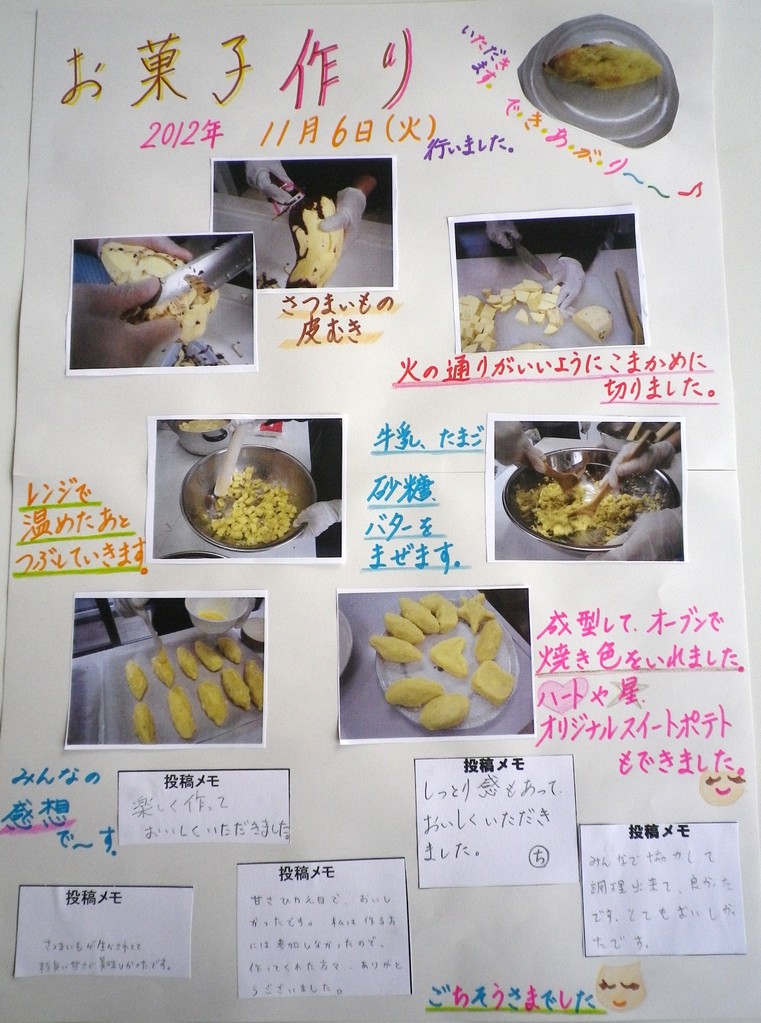 お菓子作り
2012年 11月6日(火)
行いました。
いただき
ます。
で・き・あ・が・り〜〜〜♪
さつまいもの
皮むき
火の通りがいいようにこまかめに
切りました。
レンジで
温めたあと
つぶしていきます。
牛乳、たまご
砂糖、
バターを
まぜます。
成型して、オーブンで
焼き色をいれました。
ハートや星、
オリジナルスイートポテト
もできました。
みんなの
感想
で〜す。
投稿メモ
楽しく作って
おいしくいただきました。
投稿メモ
しっとり感もあって、
おいしくいただき
ました。 ち
投稿メモ
みんなで協力して
調理出来て、良かった
です。とてもおいしか
ったです。
投稿メモ
さつまいもが生かされてて
甘さが美味しかったです。
投稿メモ
甘さひかえ目で、おいし
かったです。私は作る方
には参加しなかったので、
作ってくれた方々、ありがと
うございました。
ごちそうさまでした